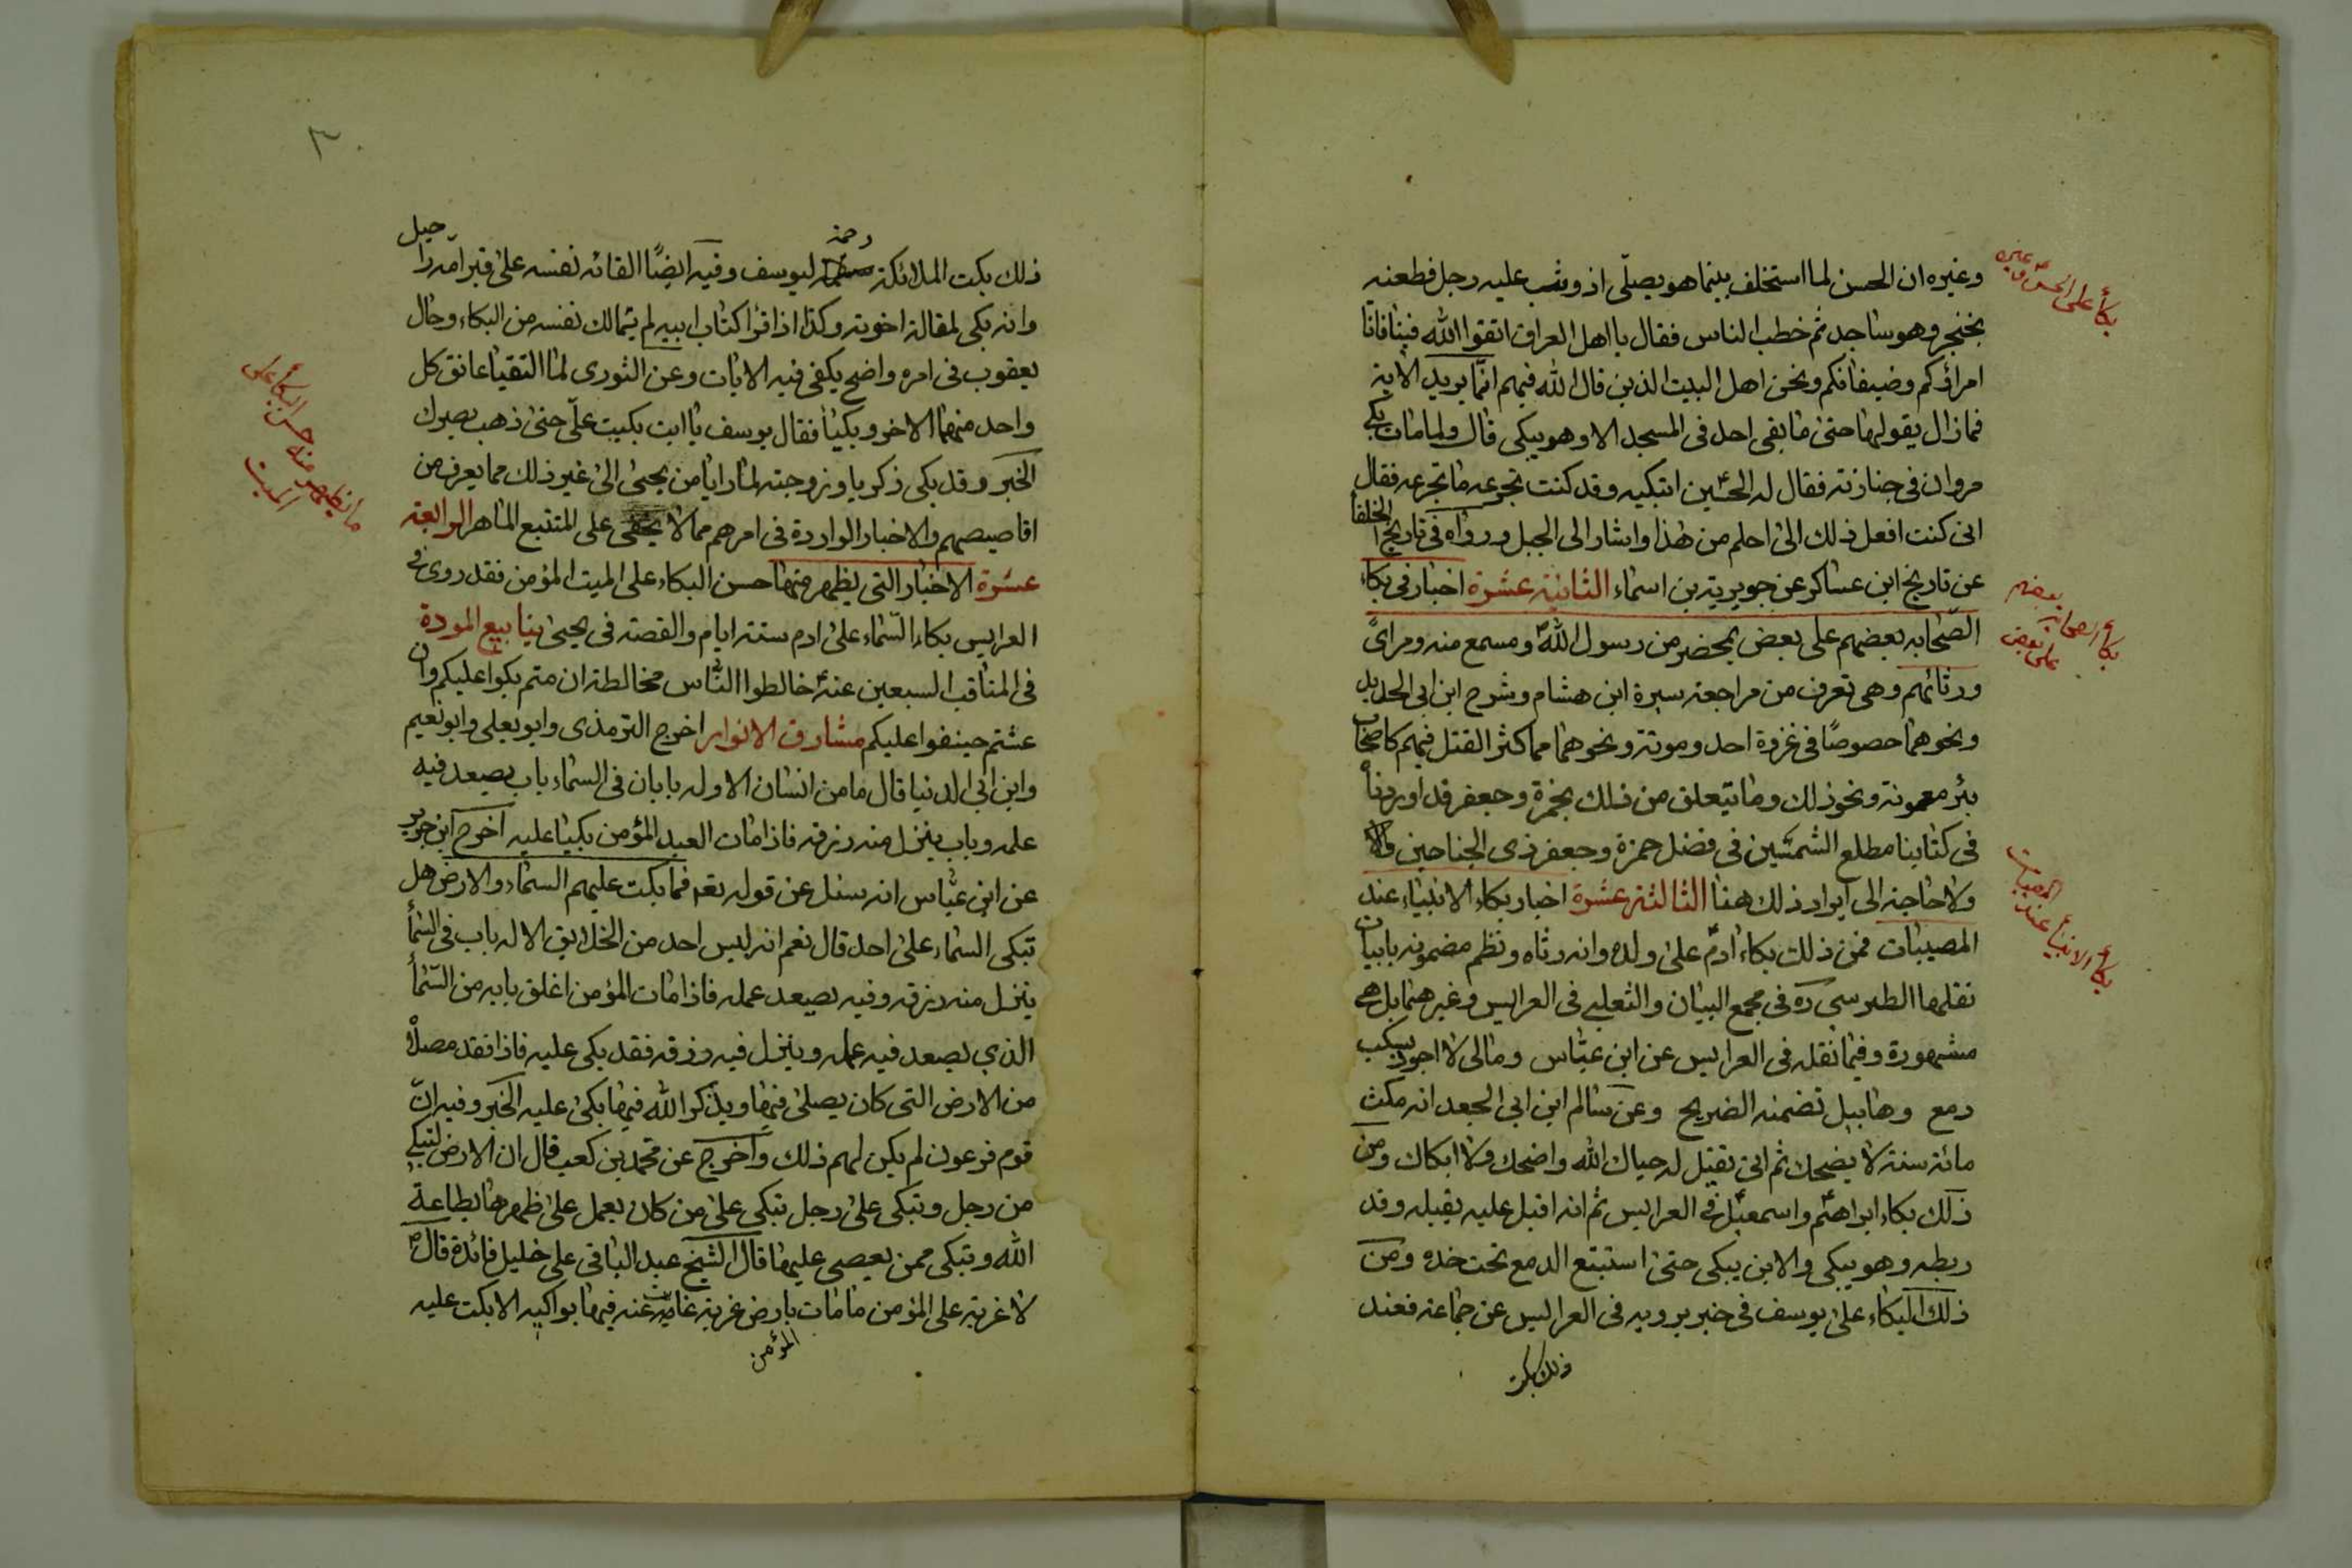 وغيره ان الحسن لما استخلف بينما هو يصلّى اذ وثب عليه رجل فطعنه
بخنجر وهو ساجد ثم خطب الناس فقال يا اهل العراق اتقوا الله فينا فانا
امراؤكم وضيفانكم ونحن اهل البيت الذين قال الله فيهم انّما يريد الاية
فما زال يقولها حتى ما بقى احد فى المسجد الا وهو يبكى قال ولما مات بكى
مروان فى جنازته فقال له الحسين اتبكيه وقد كنت تجرعه ما تجرعه فقال
انى كنت افعل ذلك الى احلم من هذا واشار الى الجبل ورواه فى تاريخ الخلفأ
عن تاريخ ابن عساكر عن جويرية بن اسماء الثانية عشرة اخبار فى بكاء
الصّحابه بعضهم على بعض بمحضر من رسول اللهص ومسمع منه ومرائً
ورثائهم وهى تعرف من مراجعة سيرة ابن هشام وشرح ابن ابى الحديد
ونحوهما خصوصًا فى غزوة احد وموتة ونحوهما مما كثر القتل فيهم كاصحاب
بئر معونة ونحو ذلك وما يتعلق من ذلك بحمزة وجعفر قد اوردناه
فى كتابنا مطلع الشمسين فى فضل حمزة وجعفر ذى الجناحين
ولا حاجة الى ايراد ذلك هنا الثالثة عشرة اخبار بكاء الانبياء عند
المصيبات فمن ذلك بكاء ادم على ولده وانه رثاه ونظم مضمونه بابيات
نقلها الطبرسى ره فى مجمع البيان والثعلبى فى العرايس وغيرهما بل هى
مشهورة وفيما نقله فى العرايس عن ابن عبّاس ومالى لا اجود بسكب
دمع وهابيل تضمنه الضريح وعن سالم ابن ابى الجعد انه مكث
مائة سنة لا يضحك ثم اتى فقيل له حياك الله واضحك ولا ابكاك ومن
ذلك بكاء ابراهيم واسمعيل فى العرايس ثم انه اقبل عليه يقبله وقد
ربطه وهو يبكى والابن يبكى حتى استبتع الدمع تحت خده ومن
ذلك البكاء على يوسف فى خبر يرويه فى العرايس عن جماعة فعند
ذلك بكت
بكأ على الحسن وغيره
بكأ الصحابه بعضهم على بعض
بكأ الانبيأ عند المصيبات
ذلك بكت الملائكة رحمة ليوسف وفيه ايضًا القائه نفسه على قبر امه راحيل
وانه بكى لمقالة اخوته وكذا اذا قرا كتاب ابيه لم يتمالك نفسه من البكاء وحال
يعقوب فى امره واضح يكفى فيه الايات وعن الثورى لما التقيا عانق كل
واحد منهما الاخر وبكيا فقال يوسف يا ابت بكيت علىّ حتى ذهب بصرك
الخبر وقد بكى ذكريا وزوجته لما رايا من يحيى الى غير ذلك مما يعرف من
اقاصيصهم والاخبار الواردة فى امرهم مما لا يخفى على المتتبع الماهر الرابعة
عشرة الاخبار التى يظهر منها حسن البكاء على الميت المؤمن فقد روى فى
العرايس بكاء السّماء على ادم ستة ايام والقصة فى يحيى ينابيع المودة
فى المناقب السبعين عنه خالطوا الناس مخالطة ان متم بكوا عليكم وان
عشتم حينفوا عليكم مشارق الانوار اخرج الترمذى وابو يعلى وابو نعيم
وابن ابى الدنيا قال ما من انسان الا وله بابان فى السماء باب يصعد فيه
عمله وباب ينزل منه رزقه فاذا مات العبد المؤمن بكيا عليه اخرج ابن جرير
عن ابن عبّاس انه سئل عن قوله تعه فما بكت عليهم السماء والارض هل
تبكى السماء على احد قال نعم انه ليس احد من الخلايق الا له باب فى السّمأ
ينزل منه رزقه وفيه يصعد عمله فاذا مات المؤمن اغلق بابه من السّمأ
الذي يصعد فيه عمله وينزل فيه رزقه فقد بكى عليه فاذا فقد مصلاه
من الارض التى كان يصلى فيها ويذكر الله فيها بكى عليه الخبر وفيه انّ
قوم فرعون لم يكن لهم ذلك واخرج عن محمد بن كعب قال ان الارض لتبكى
من رجل وتبكى على رجل تبكى على من كان يعمل على ظهرها بطاعة
الله وتبكى ممن يعصى عليها قال الشيخ عبد الباقى على خليل فائدة قالص
لا غربة على المؤمن ما مات بارض غربة غابت عنه فيها بواكيه الا بكت عليه
المؤمن
ما يظهر منه حسن البكأ على الميت